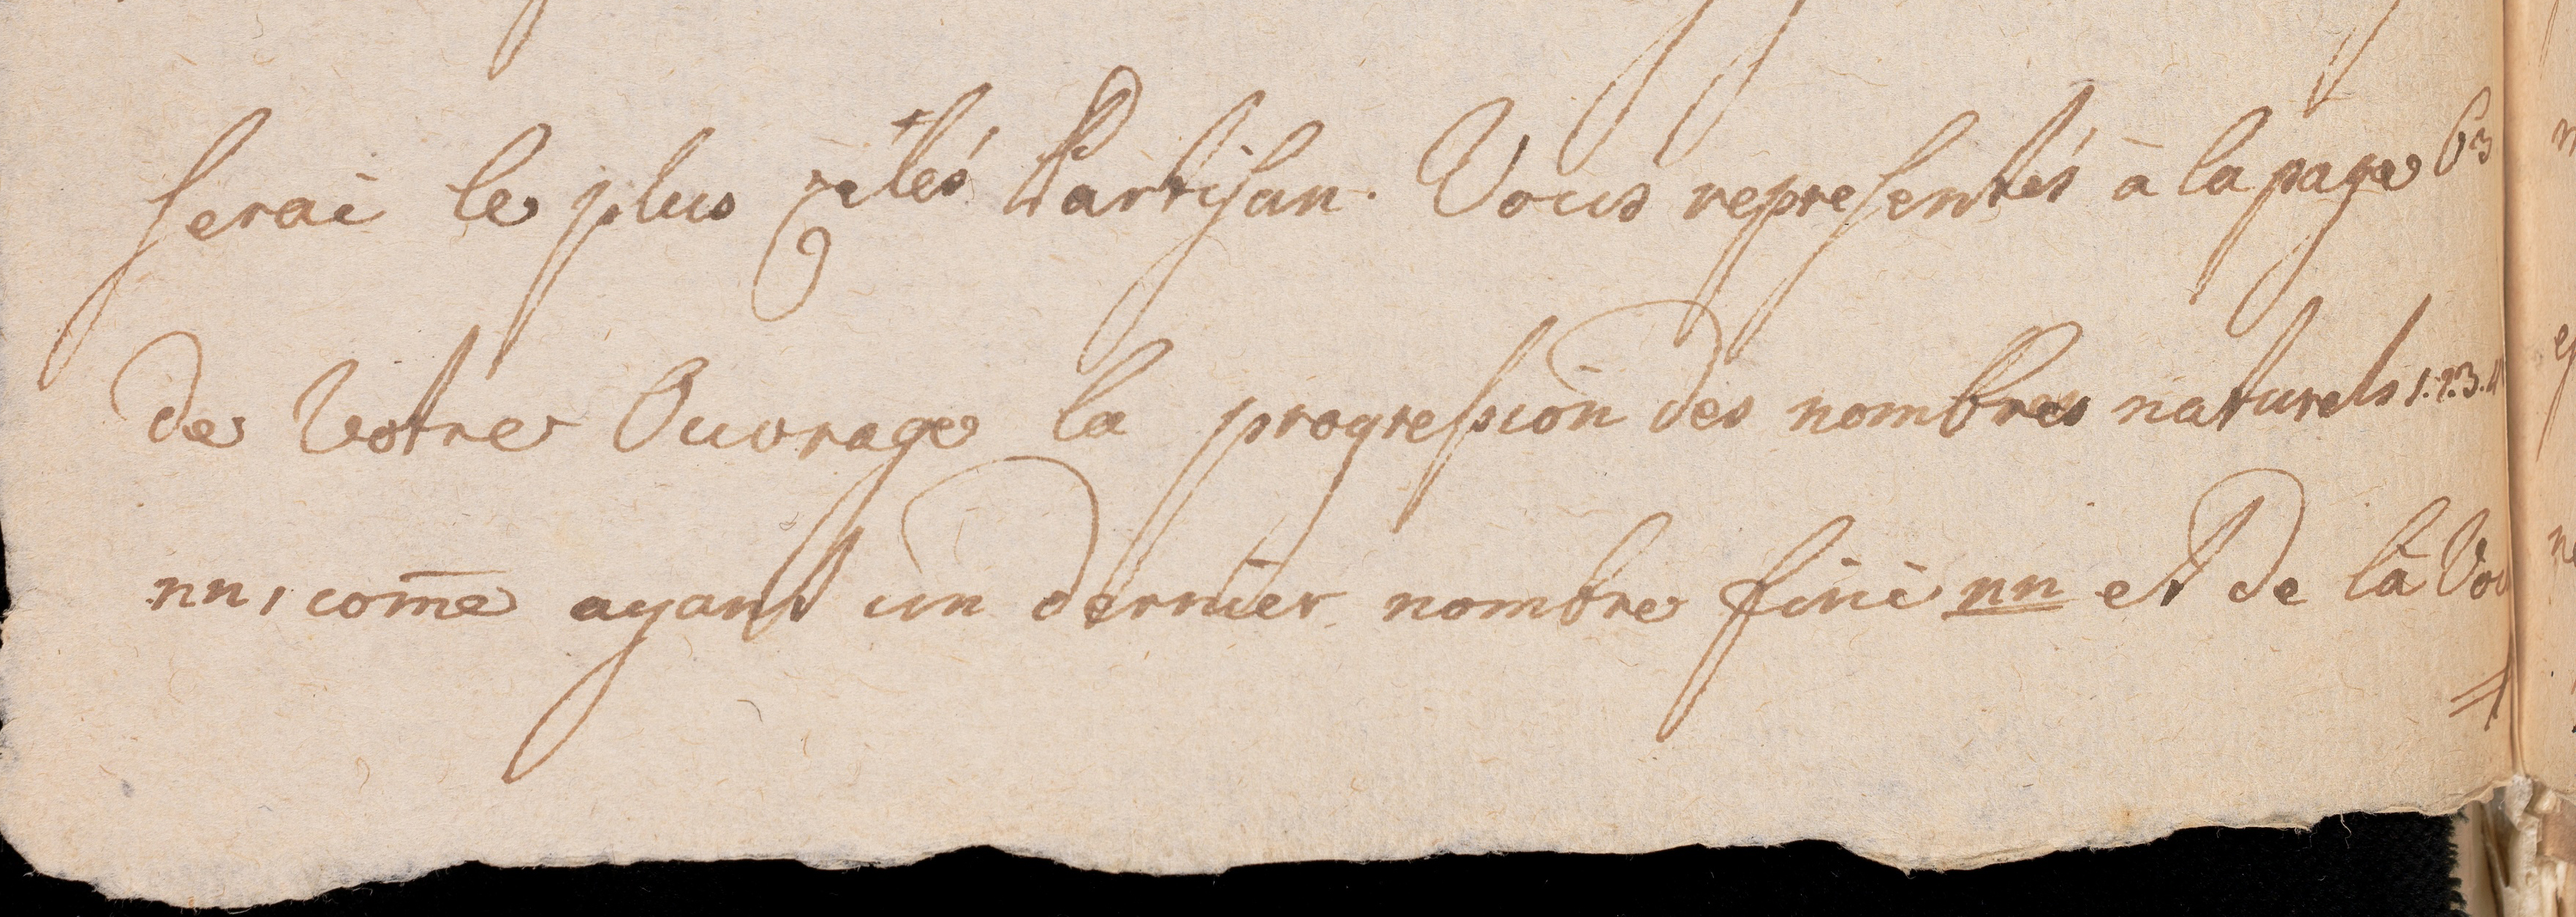 serai le plus zelés Partisan. Vous representés à la page 63
de Votre Ouvrage la progression des nombres naturels 1.2.3.4
nn, com̄e ayant un dernier nombre fini nn et de là Vou